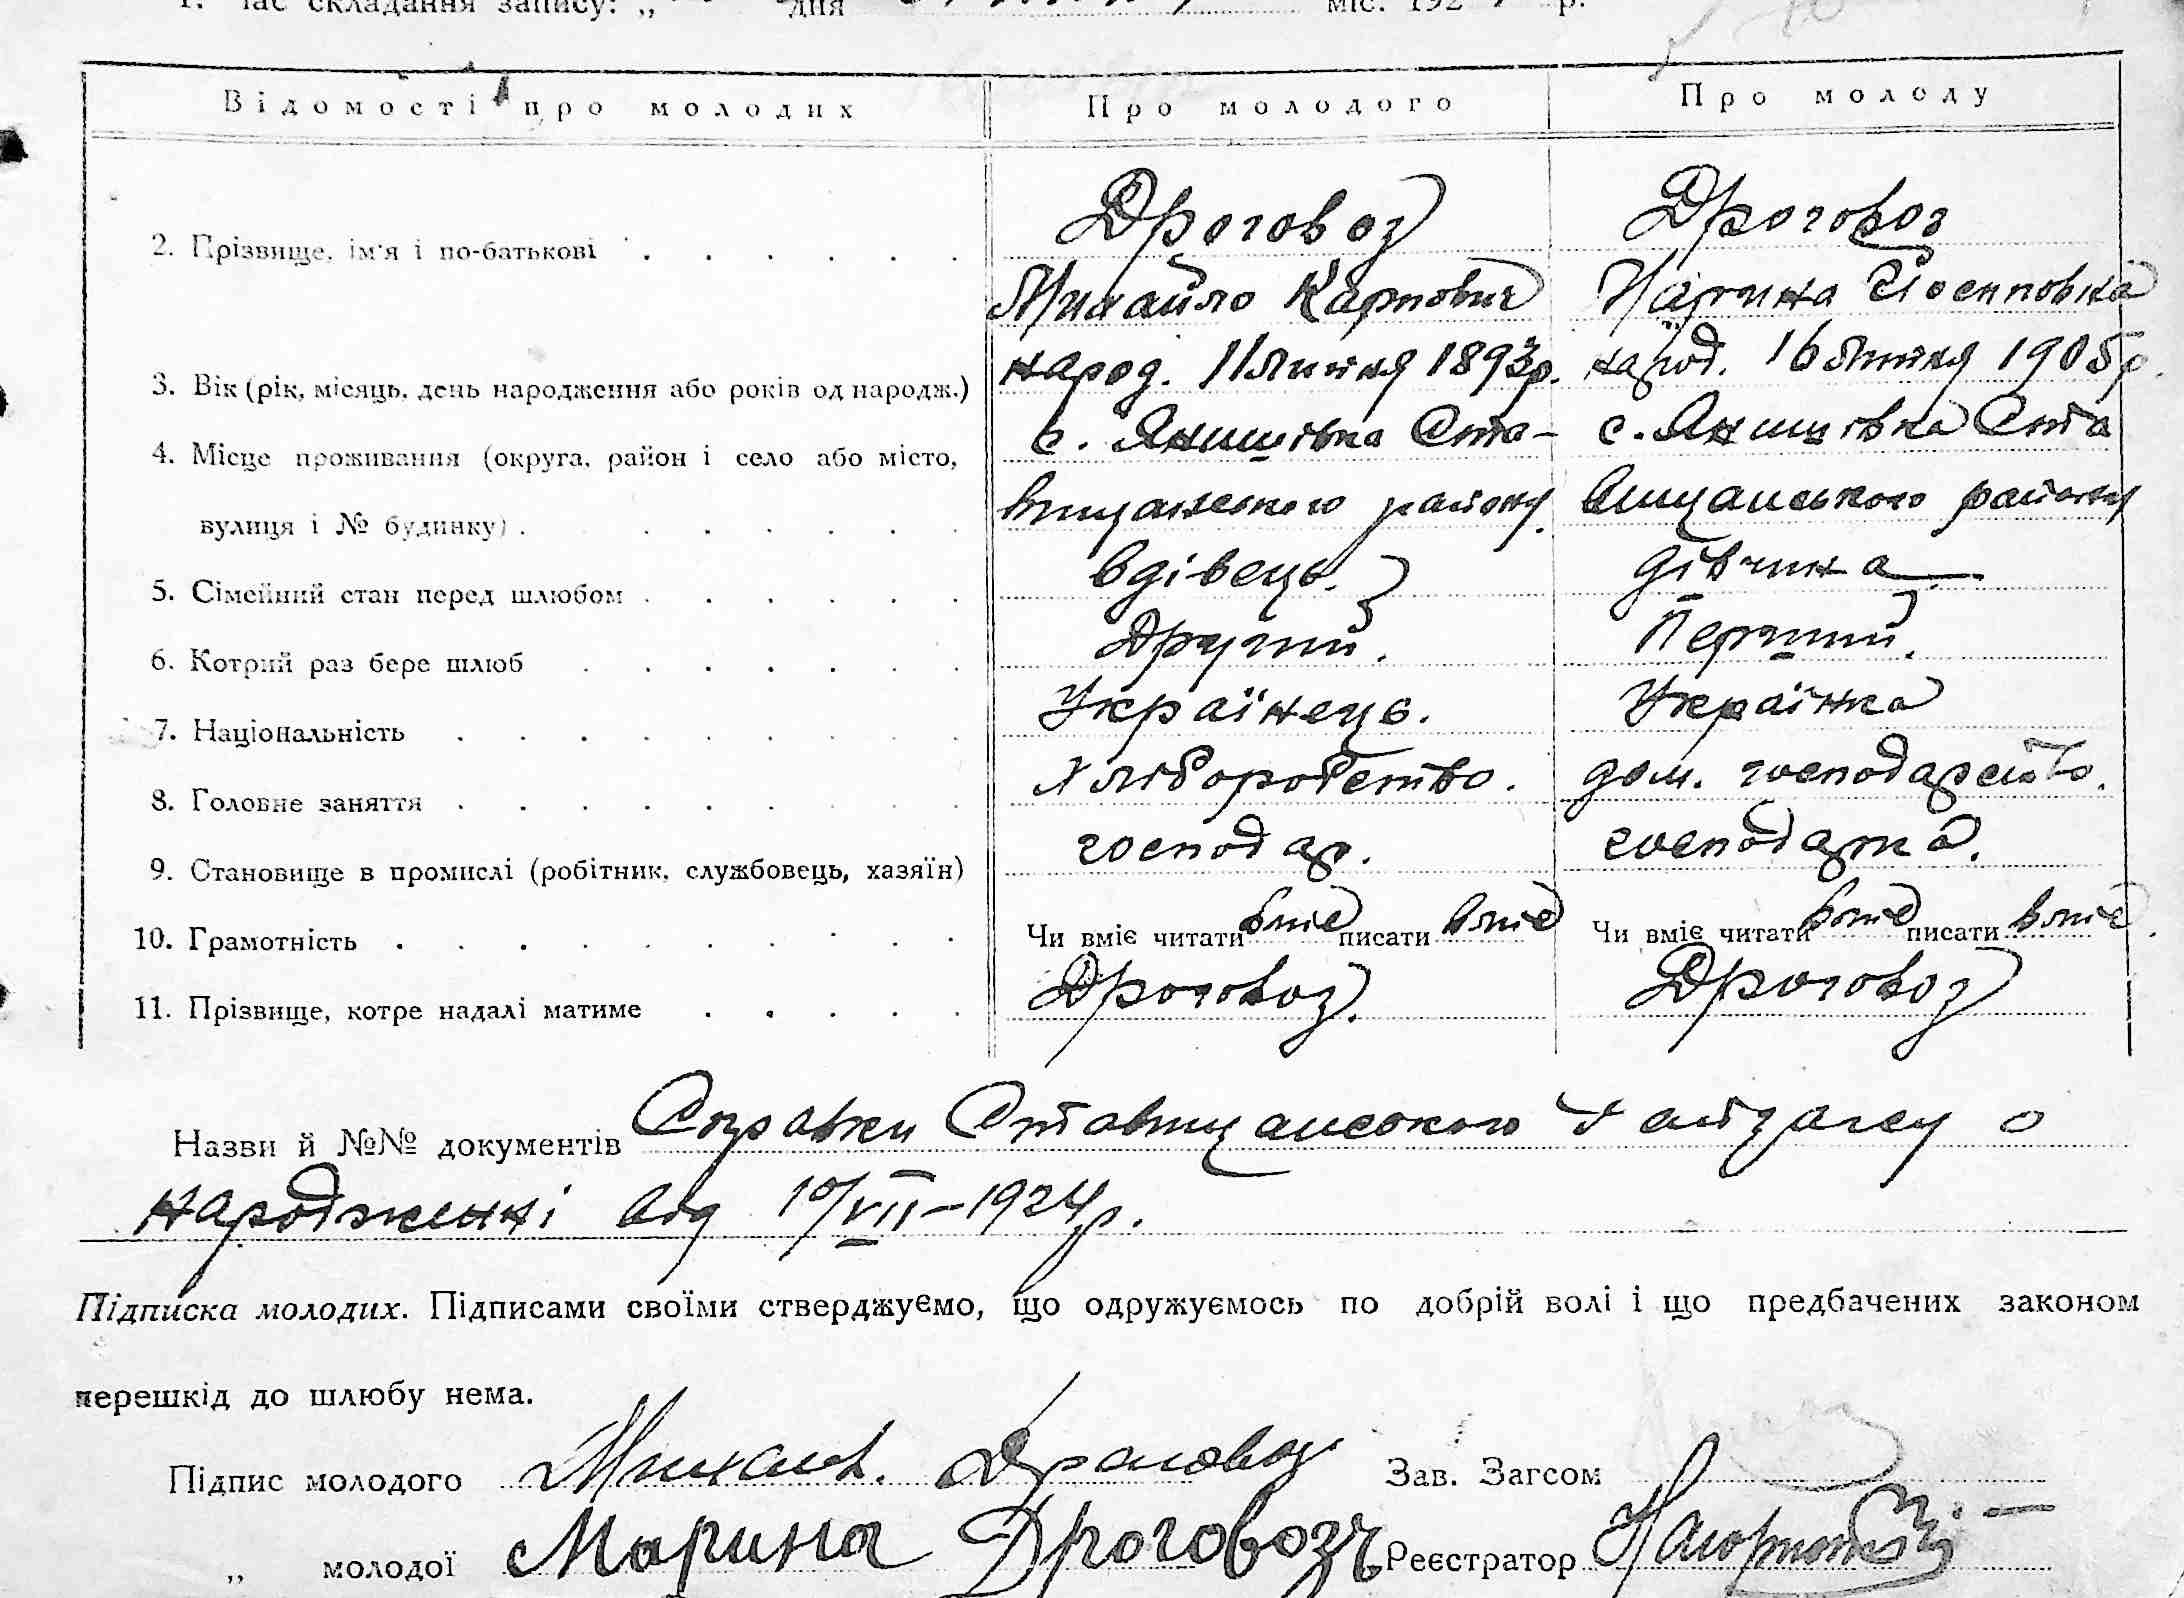 1. Час складання запису: „ дня міс. 192 р.
Відомості про молодих Про молодого Про молоду
Дроговоз Дроговоз
2. Прізвище, ім'я і по-батькові
Михайло Карпович Марина Йосиповна
3. Вік (рік, місяць, день народження або років од народж.) народ. 11 липня 1893р. народ. 16 липня 1905р.
4. Місце проживання (округа, район і село або місто, с. Янишівка Ста- с. Янишівка Ста
вулиця і № будинку) вищанського району. вищанського району
5. Сімейний стан перед шлюбом вдівець. дівчина
6. Котрий раз бере шлюб Другий. Перший.
7. Національність Українець. Українка
8. Головне заняття Хліборобство. дом. господарство.
9. Становище в промислі (робітник, службовець, хазяїн) господар. господарка.
10. Грамотність Чи вміє читати вміє писати вміє Чи вміє читати вміє писати вміє.
11. Прізвище, котре надалі матиме Дроговоз. Дроговоз
Назви й №№ документів Справки Ставищанського о
народженні від 10/VII-1924р.
Підписка молодих. Підписами своїми стверджуємо, що одружуємось по добрій волі і що предбачених законом
перешкід до шлюбу нема.
Підпис молодого Зав. Загсом
„ молодої Марина Дроговозъ Реєстратор